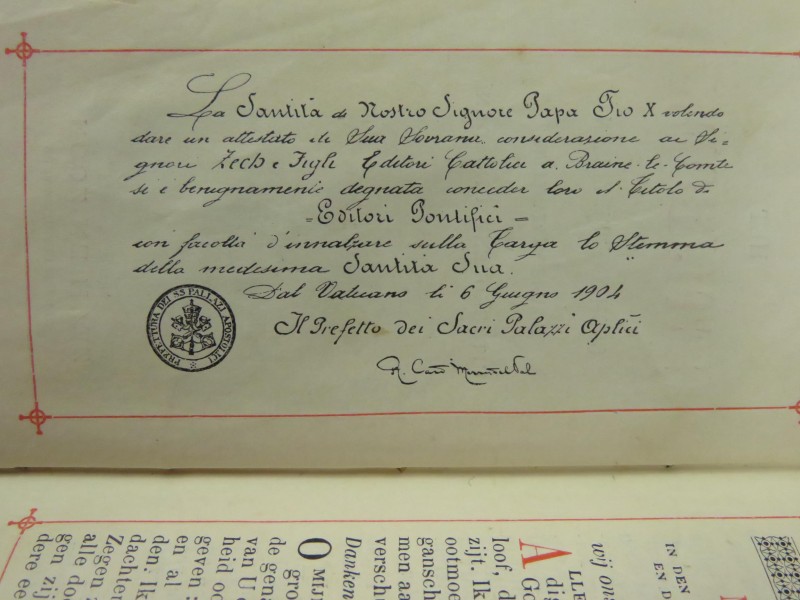 La Santità di Nostro Signore Papa Pio X volendo
dare un attestato di Sua Sovrana considerazione ai Si=
gnori Zech e Figli Editori Cattolici a Braine-le-Comte
si è benignamente degnata conceder loro il Titolo di
=Editori Pontifici=
con facoltà d'innalzare sulla Targa lo Stemma
della medesima Santità Sua.
Dal Vaticano li 6 Giugno 1904
Il Prefetto dei Sacri Palazzi Aplici
R. Card Merry del Val
PREFETTURA DEI SS PALLAZI APOSTOLICI
IN DEN
EN D
wij ons
ALLE
dig
Go
loof, d
zijt. Ik
ootmoe
gansch
men aa
versch
Danken
O MIJN
gro
de gena
van U
heid oc
geven
en al
den. Ik
dachten
Zegen
alle doo
gen zij
dere ee